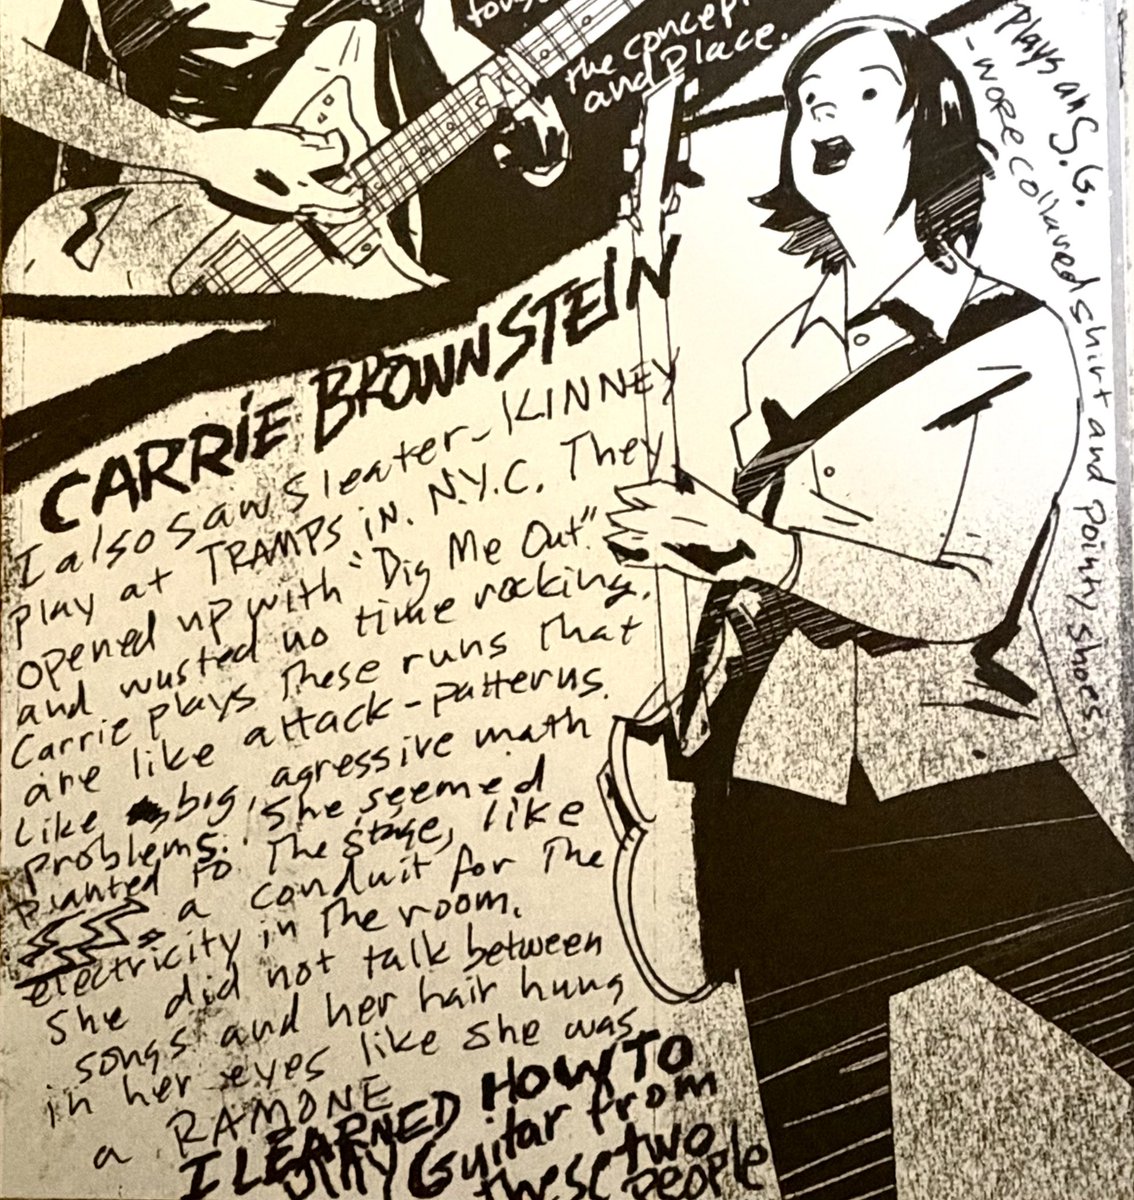 the concept
and Place.
Plays an S.G.
- wore collared shirt and pointy shoes.
CARRIE BROWNSTEIN
I also saw Sleater-KINNEY
play at TRAMPS in N.Y.C. They
opened up with "Dig Me Out"
and wasted no time rocking.
Carrie plays These runs That
are like attack-patterns.
Like big, agressive math
problems. She seemed
planted to The stage, like
a conduit for The
electricity in The room.
She did not talk between
songs and her hair hung
in her eyes like she was
a RAMONE
I LEARNED HOW TO
PLAY Guitar from
these two
people